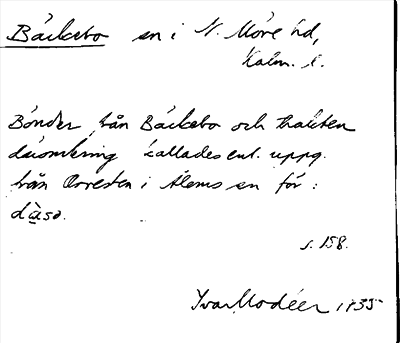 Bäckebo sn i N. Möre hd,
Kalm. l.
Bönder från Bäckebo och trakten
däromkring kallades enl. uppg.
från Orresten i Ålems sn för:
dàsa.
s. 158.
Yvar Modéer 1935